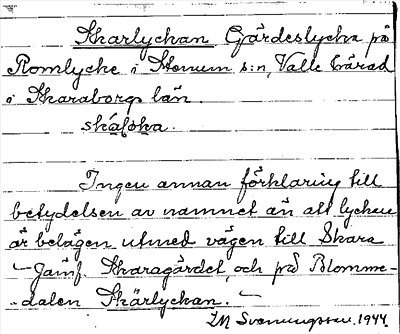 Skarlyckan Gärdeslycka på
Romlycke i Stenum s:n, Valle härad
i Skaraborgs län.
Ingen annan förklaring till
betydelsen av namnet än att lyckan
är belägen utmed vägen till Skara
– Jämf. Skaragärdet, och på Blomme-
-dalen Skärlyckan. –
1944.